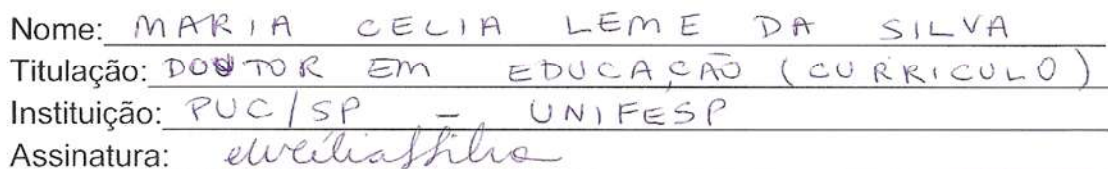 Nome: MARIA CELIA LEME DA SILVA
Titulação: DOUTOR EM EDUCAÇÃO (CURRICULO)
Instituição: PUC/SP – UNIFESP
Assinatura: